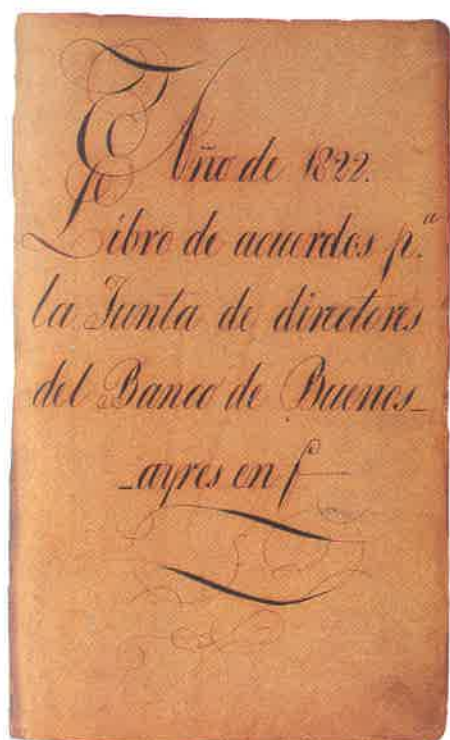 Año de 1822.
Libro de acuerdos p.ª
la Junta de directores
del Banco de Buenos_
_ayres en f